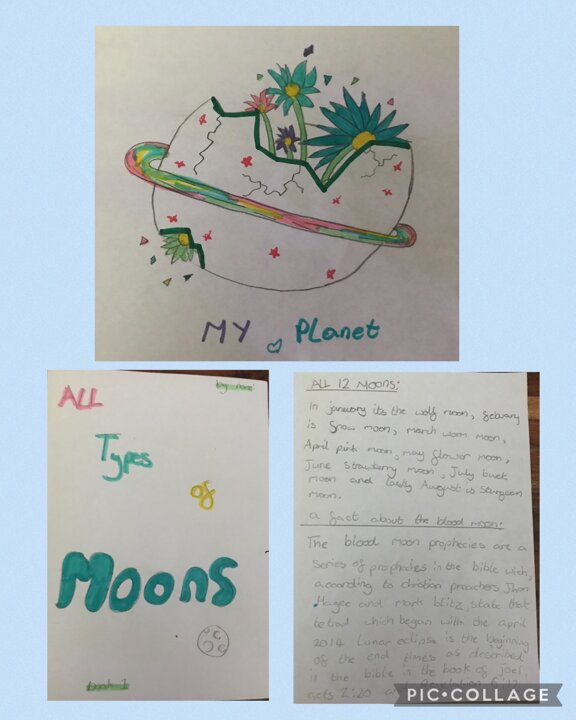 MY Planet
ALL
Types
of
Moons
Book 1
ALL 12 Moons:
In january its the wolf moon, febuary
is snow moon, march worm moon,
April pink moon, may flower moon,
June strawberry moon, July buck
moon and lastly August is Sturgeon
moon.
a fact about the blood moon:
The blood moon prophecies are a
series of prophecies in the bible wich,
according to christian preachers Jhon
Hagee and mark blitz, state that
tetrad which began with the april
2014 Lunar eclipse is the beginning
of the end times as described
in the bible in the book of Joel,
acts 2:20 and Revelation 6:12
PIC•COLLAGE